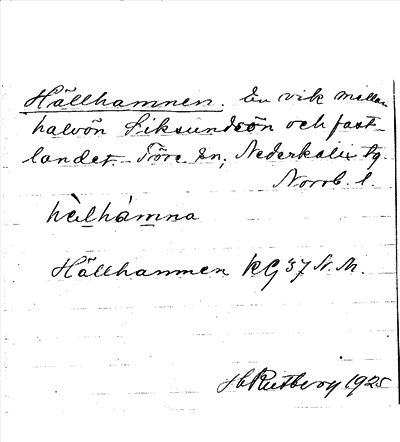 Hällhamnen. En vik mellan
halvön Siksundsön och fast-
landet. Töre sn, Nederkalix tg.
Norrb. l.
hèlhámna
Hällhammen KG 37 N. M.
Hb Rutberg 1925